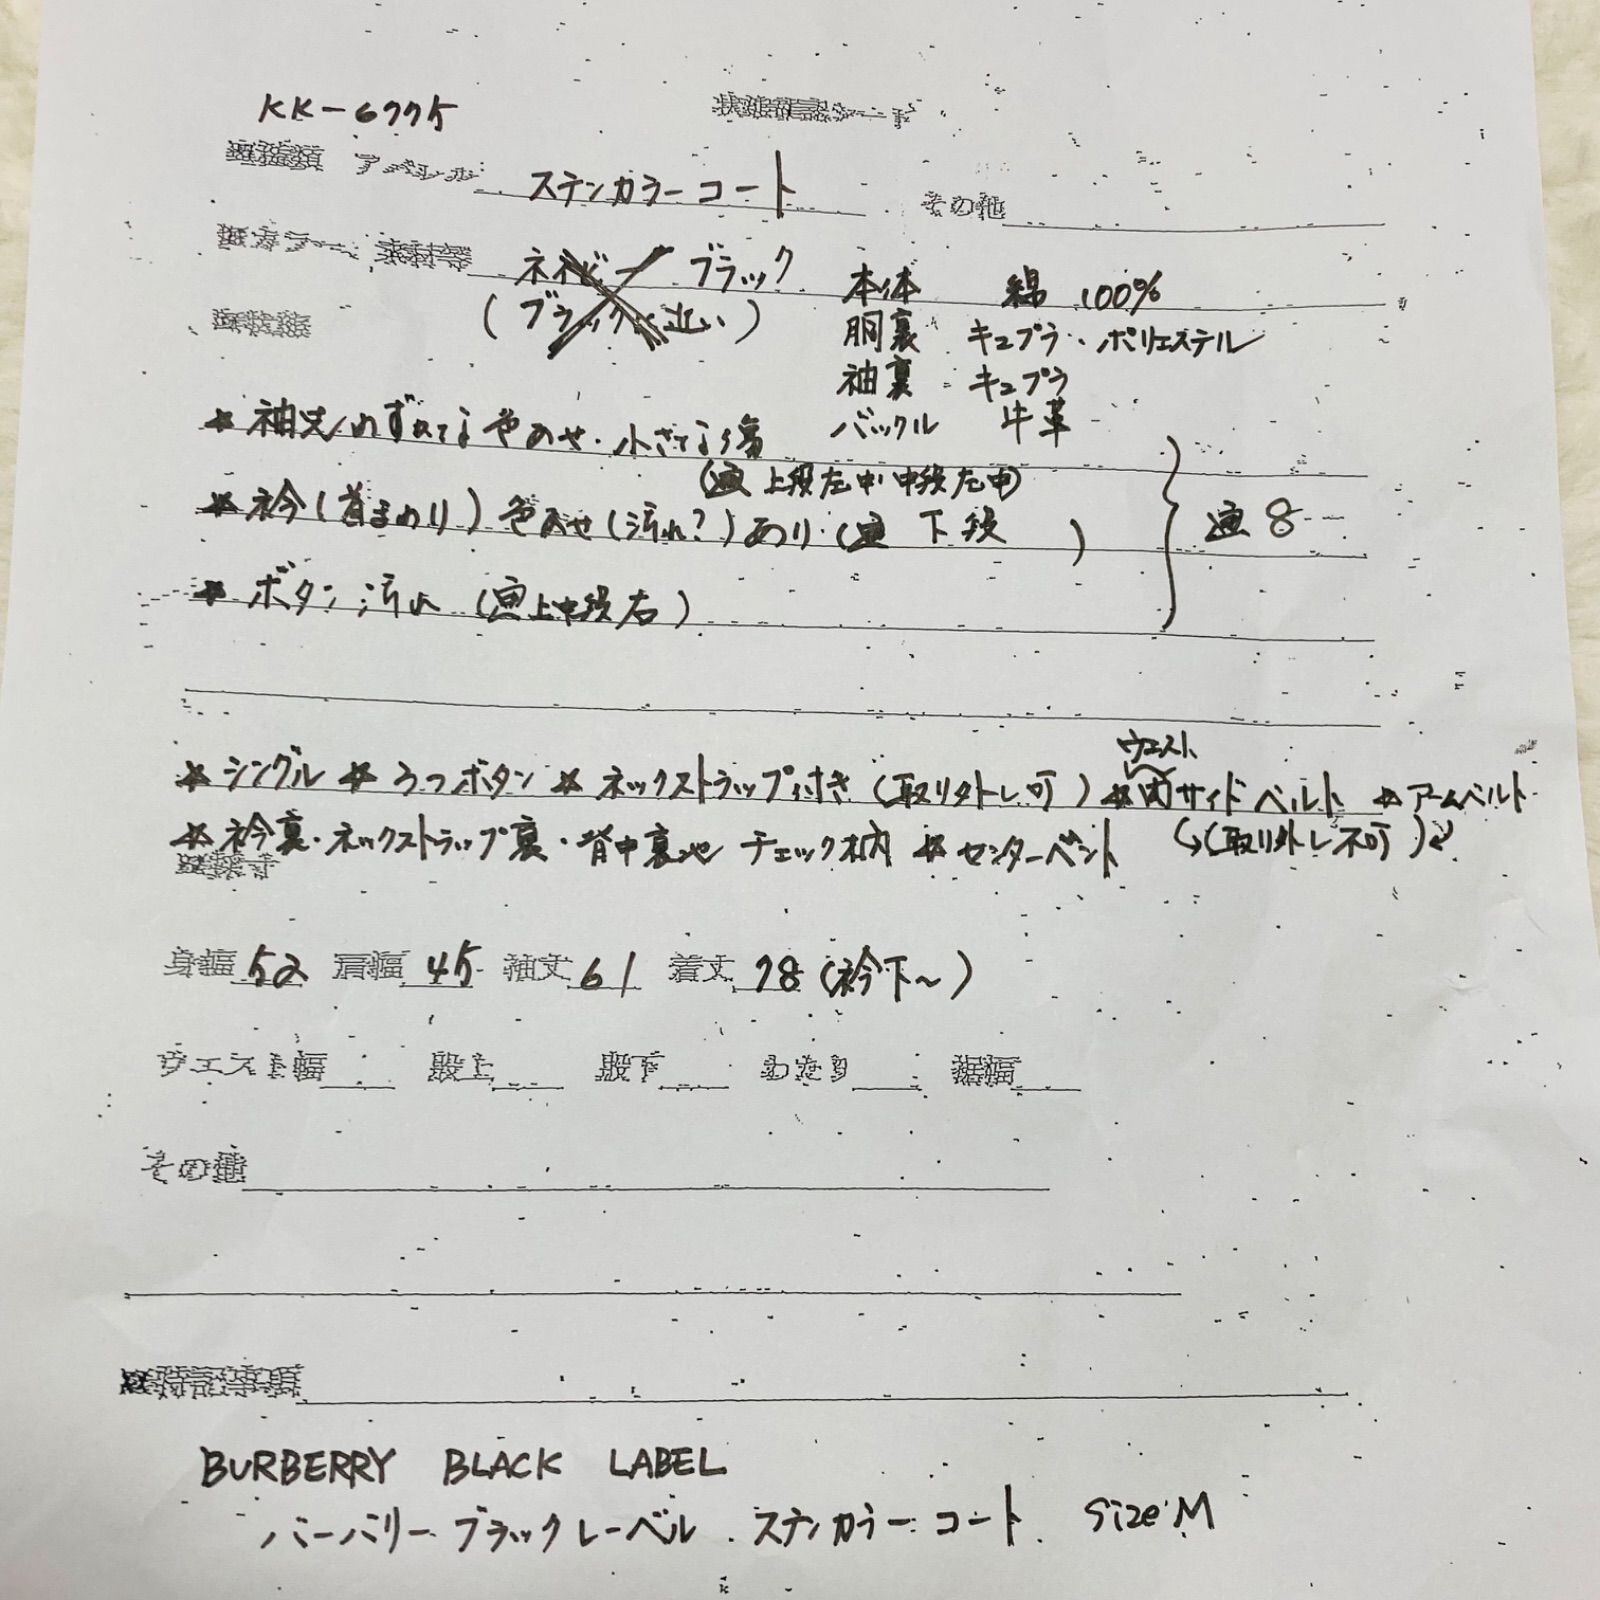 KK-6775
状態確認シート
■種類 アパレル ステンカラーコート その他
■カラー・素材等 ネイビー ブラック 本体 綿 100%
(ブラックに近い)
■状態 胴裏 キュプラ・ポリエステル
袖裏 キュプラ
バックル 牛革
* 袖丈 わずかな色あせ・小さな傷
(画 上段左中・中段左中)
* 衿(首まわり)色あせ(汚れ?)あり・(画 下段 ) 画8
* ボタン汚れ (画上中段右)
ウエスト
* シングル * 3つボタン * ネックストラップ付き(取り外し可) * 両サイドベルト * アームベルト
* 衿裏・ネックストラップ裏・背中裏地 チェック柄 * センターベント (取り外し不可)
■採寸
身幅 52 肩幅 45 袖丈 61 着丈 78 (衿下~)
ウエスト幅 股上 股下 わたり 裾幅
その他
■特記事項
BURBERRY BLACK LABEL
バーバリーブラックレーベル ステンカラーコート SizeM